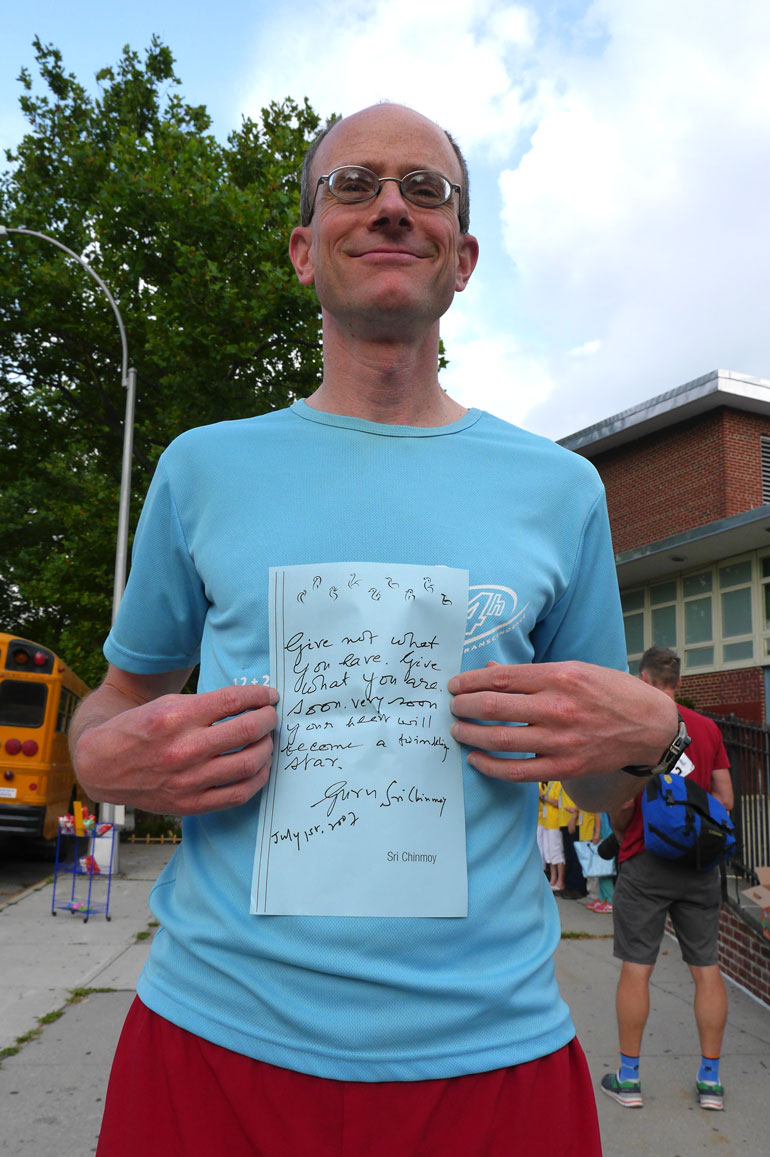 4h
TRANSLINGEN
12 + 2
Give not what
you have. Give
what you are.
Soon, very soon
your heart will
become a twinkling
star.
Guru Sri Chinmoy
July 1st, 2007
Sri Chinmoy